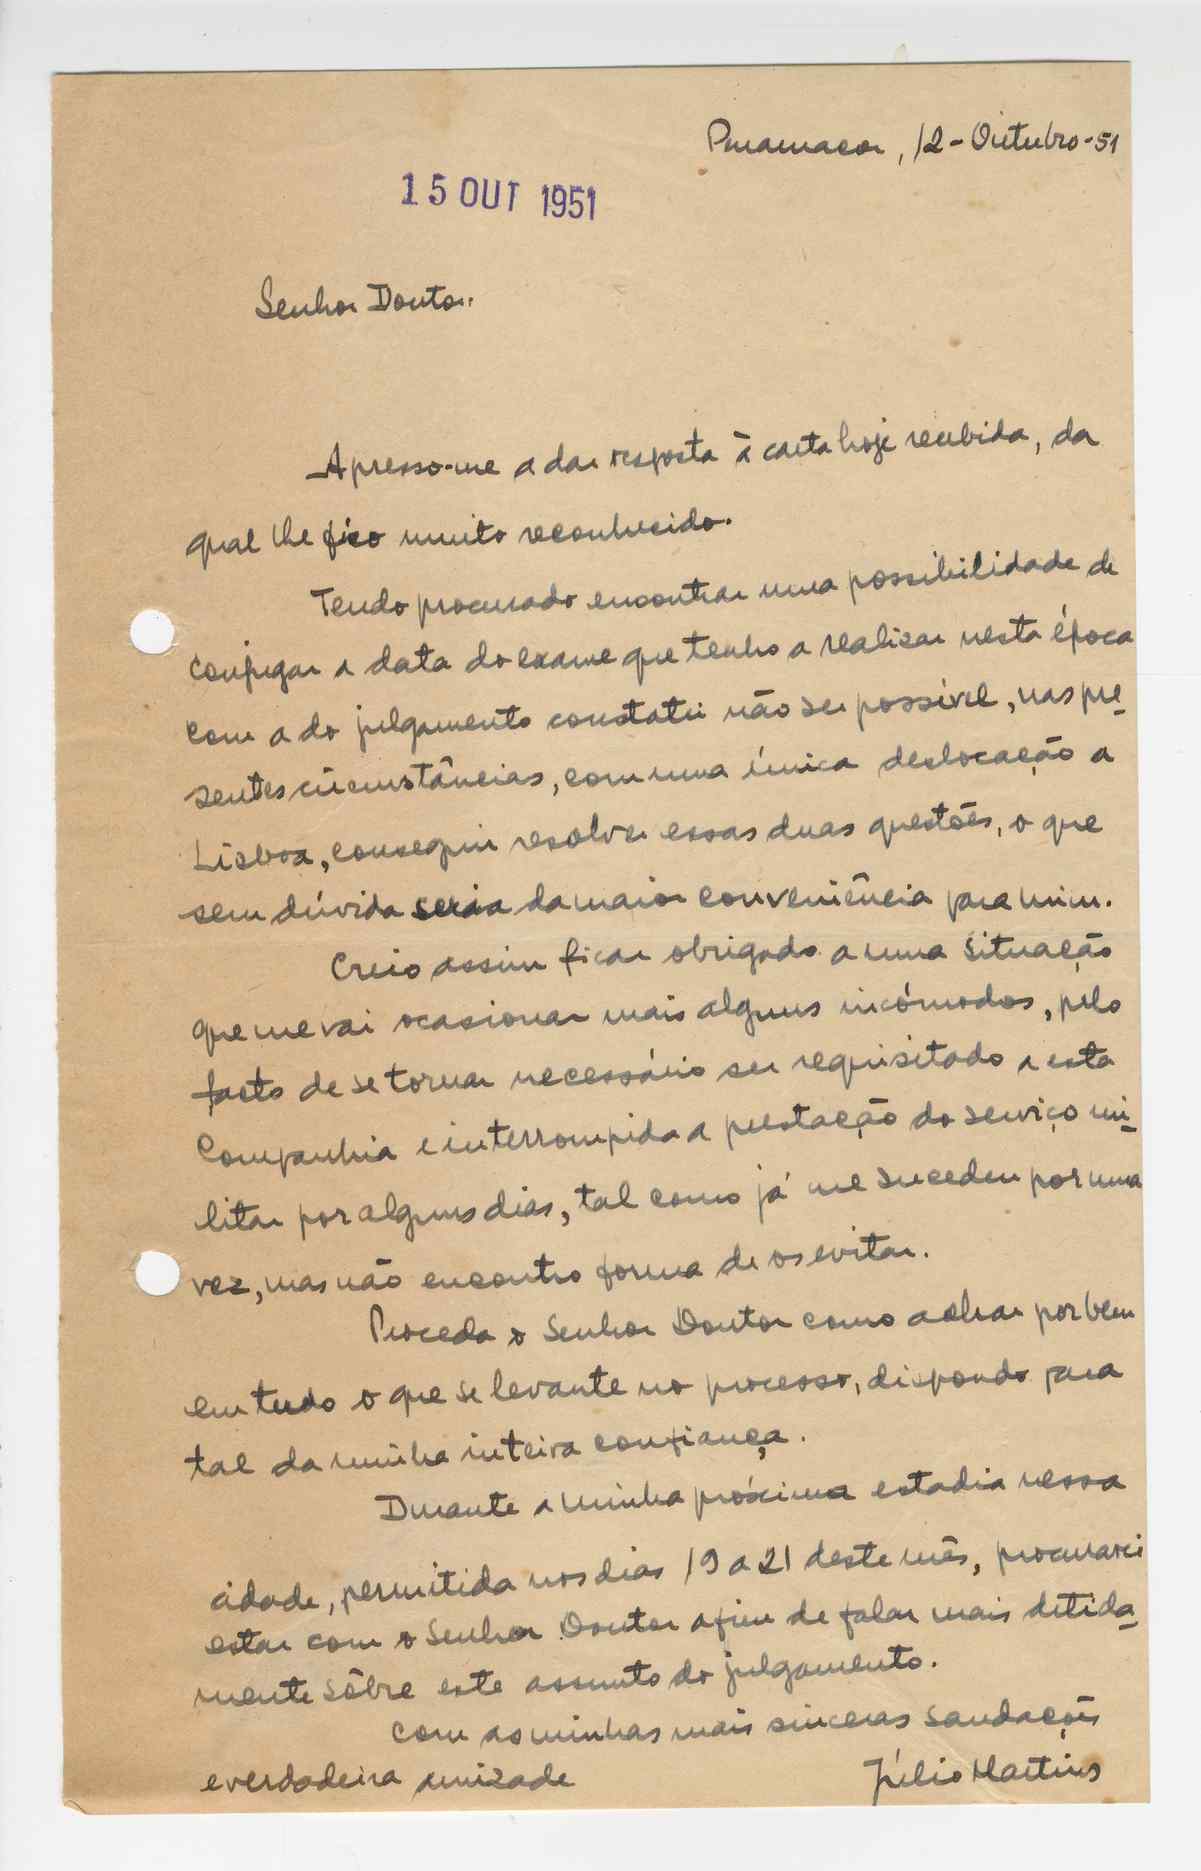 Penamacor, 12-Outubro-51
15 OUT 1951
Senhor Doutor.
Apresso-me a dar resposta à carta hoje recebida, da
qual lhe fico muito reconhecido.
Tendo procurado encontrar uma possibilidade de
conjugar a data do exame que tenho a realizar nesta época
com a do julgamento constatei não ser possível, nas pre-
sentes circunstâncias, com uma única deslocação a
Lisboa, conseguir resolver essas duas questões, o que
sem dúvida seria da maior conveniência para mim.
Creio assim ficar obrigado a uma situação
que me vai ocasionar mais alguns incómodos, pelo
facto de se tornar necessário ser requisitado a esta
Companhia e interrompida a prestação do serviço mi-
litar por alguns dias, tal como já me sucedeu por uma
vez, mas não encontro forma de os evitar.
Proceda o Senhor Doutor como achar por bem
em tudo o que se levante no processo, dispondo para
tal da minha inteira confiança.
Durante a minha próxima estadia nessa
cidade, permitida nos dias 19 a 21 deste mês, procurarei
estar com o Senhor Doutor afim de falar mais detida-
mente sôbre este assunto do julgamento.
Com as minhas mais sinceras saudações
e verdadeira amizade
Júlio Martins